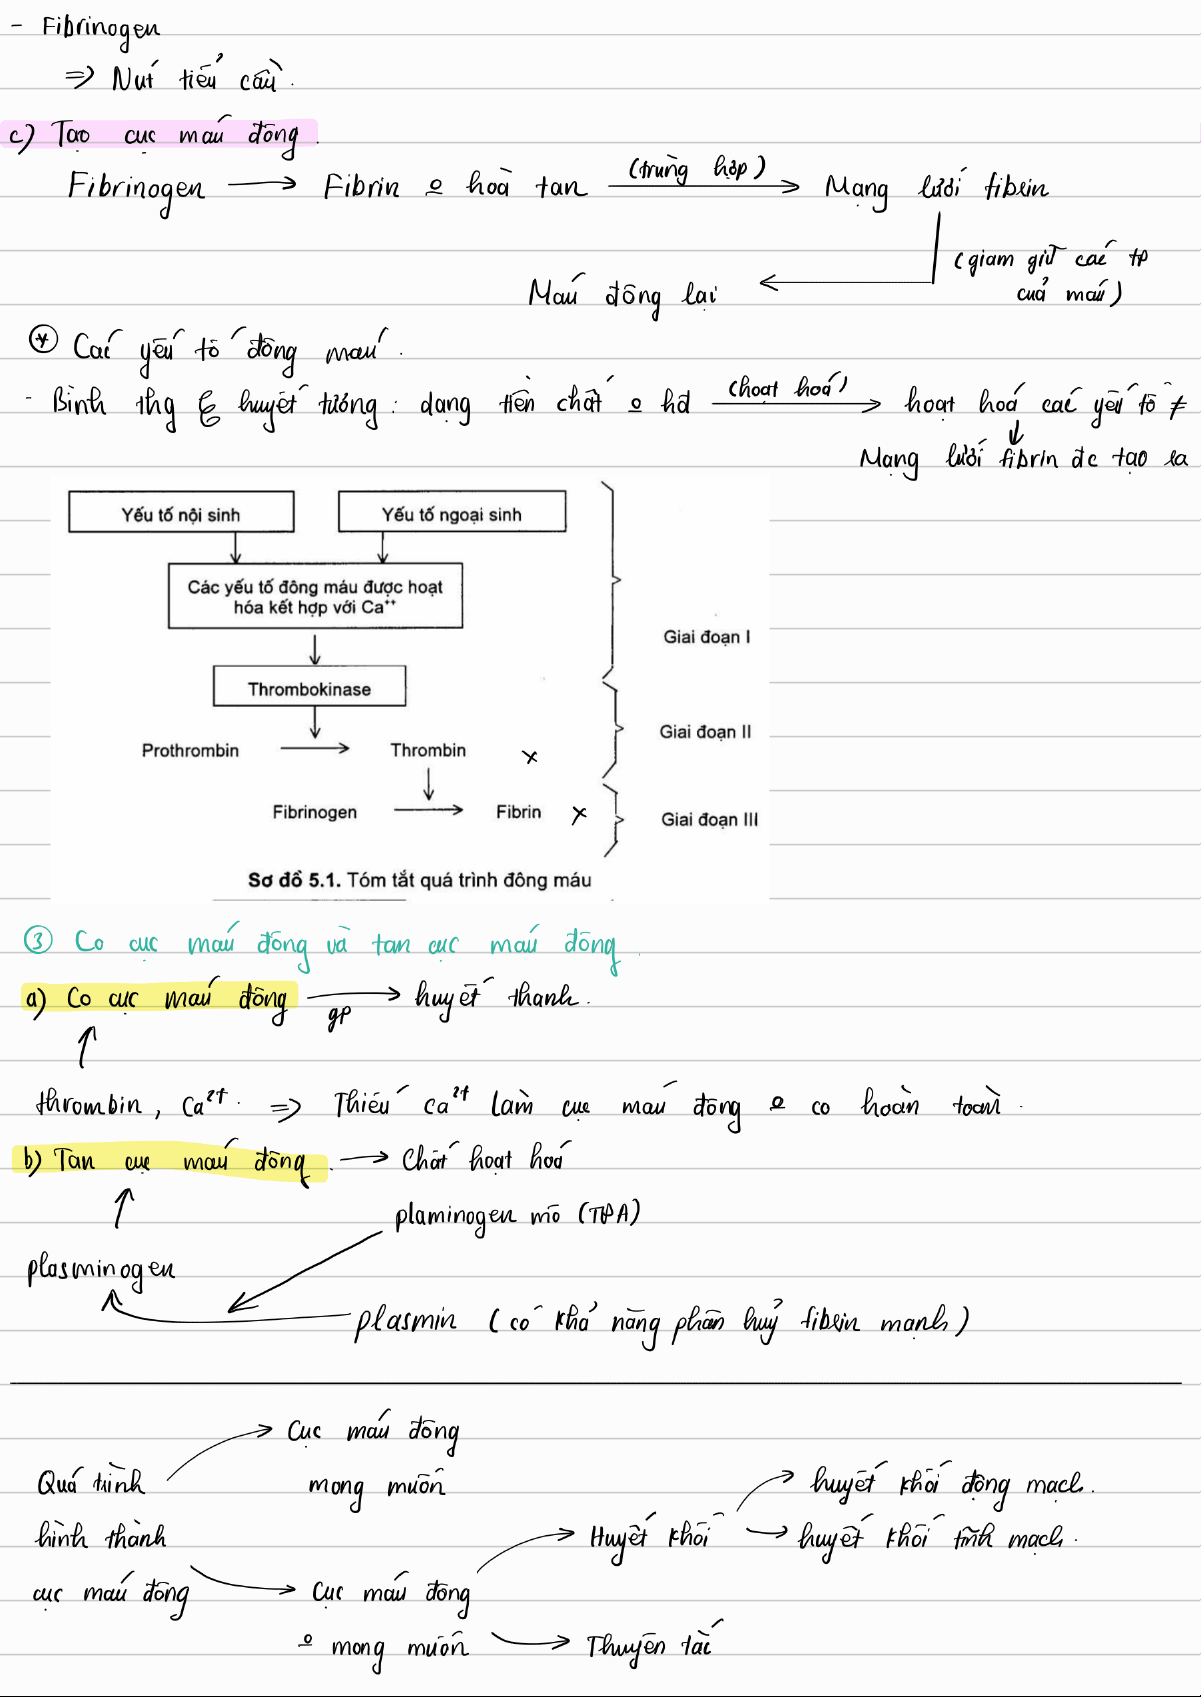 - Fibrinogen
=> Nút tiểu cầu.
c) Tạo cục máu đông.
Fibrinogen → Fibrin o hoà tan (trùng hợp) → Mạng lưới fibrin
(giam giữ các tp
của máu)
Máu đông lại
* Các yếu tố đông máu.
- Bình thg huyết tương: dạng tiền chất o hđ (hoạt hoá) → hoạt hoá các yếu tố ≠
↓
Mạng lưới fibrin đc tạo ra
Yếu tố nội sinh Yếu tố ngoại sinh
Các yếu tố đông máu được hoạt
hóa kết hợp với Ca++
Giai đoạn I
Thrombokinase
Giai đoạn II
Prothrombin → Thrombin x
Fibrinogen → Fibrin x Giai đoạn III
Sơ đồ 5.1. Tóm tắt quá trình đông máu
③ Co cục máu đông và tan cục máu đông.
a) Co cục máu đông → huyết thanh.
gp
thrombin, Ca2+. => Thiếu Ca2+ làm cục máu đông o co hoàn toàn.
b) Tan cục máu đông. → Chất hoạt hoá
plaminogen mô (TPA)
plasminogen
plasmin (có khả năng phân huỷ fibrin mạnh)
Cục máu đông
Quá trình mong muốn huyết khối động mạch.
hình thành Huyết khối → huyết khối tĩnh mạch.
cục máu đông → Cục máu đông
o mong muốn → Thuyên tắc